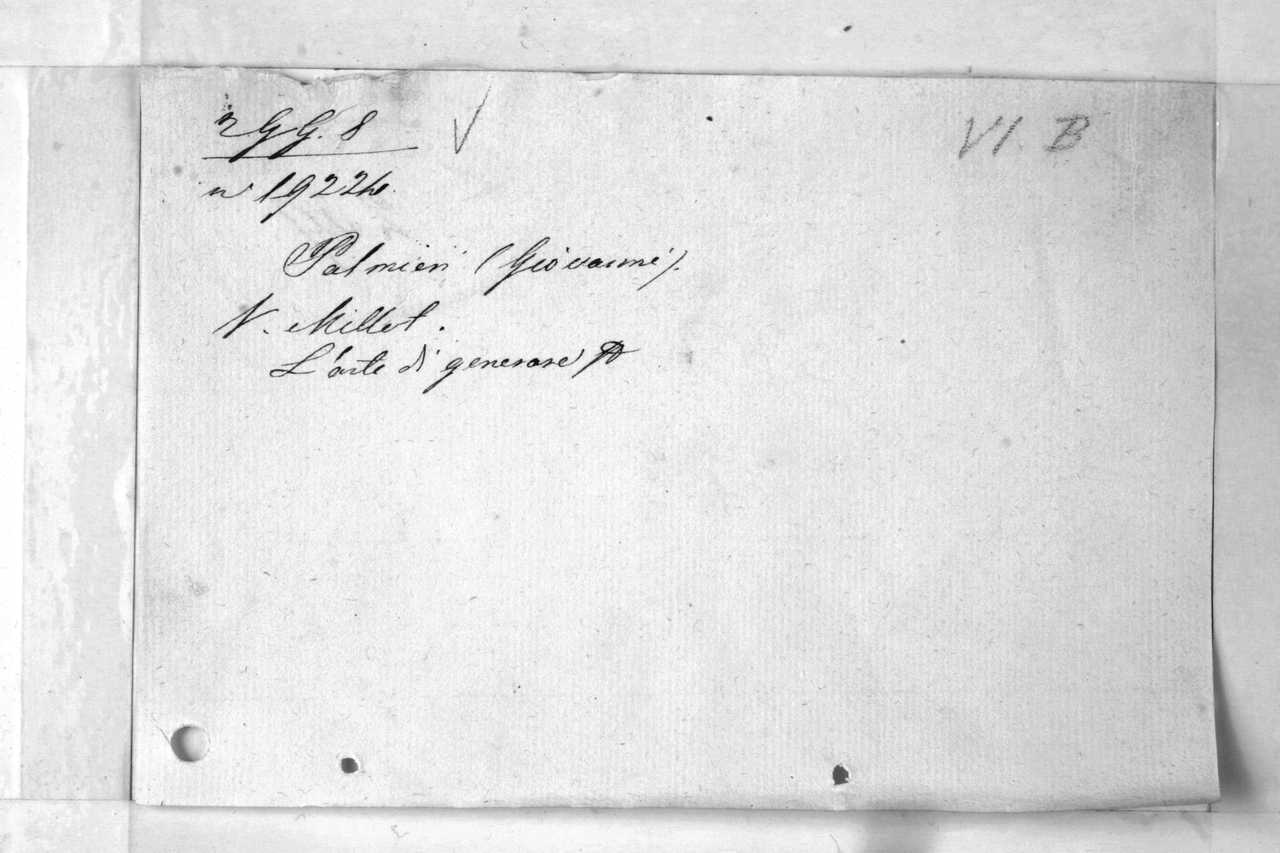 2 GG. 8 VI. B
n° 19224
Palmieri (Giovanni).
V. Millot.
L'arte di generare